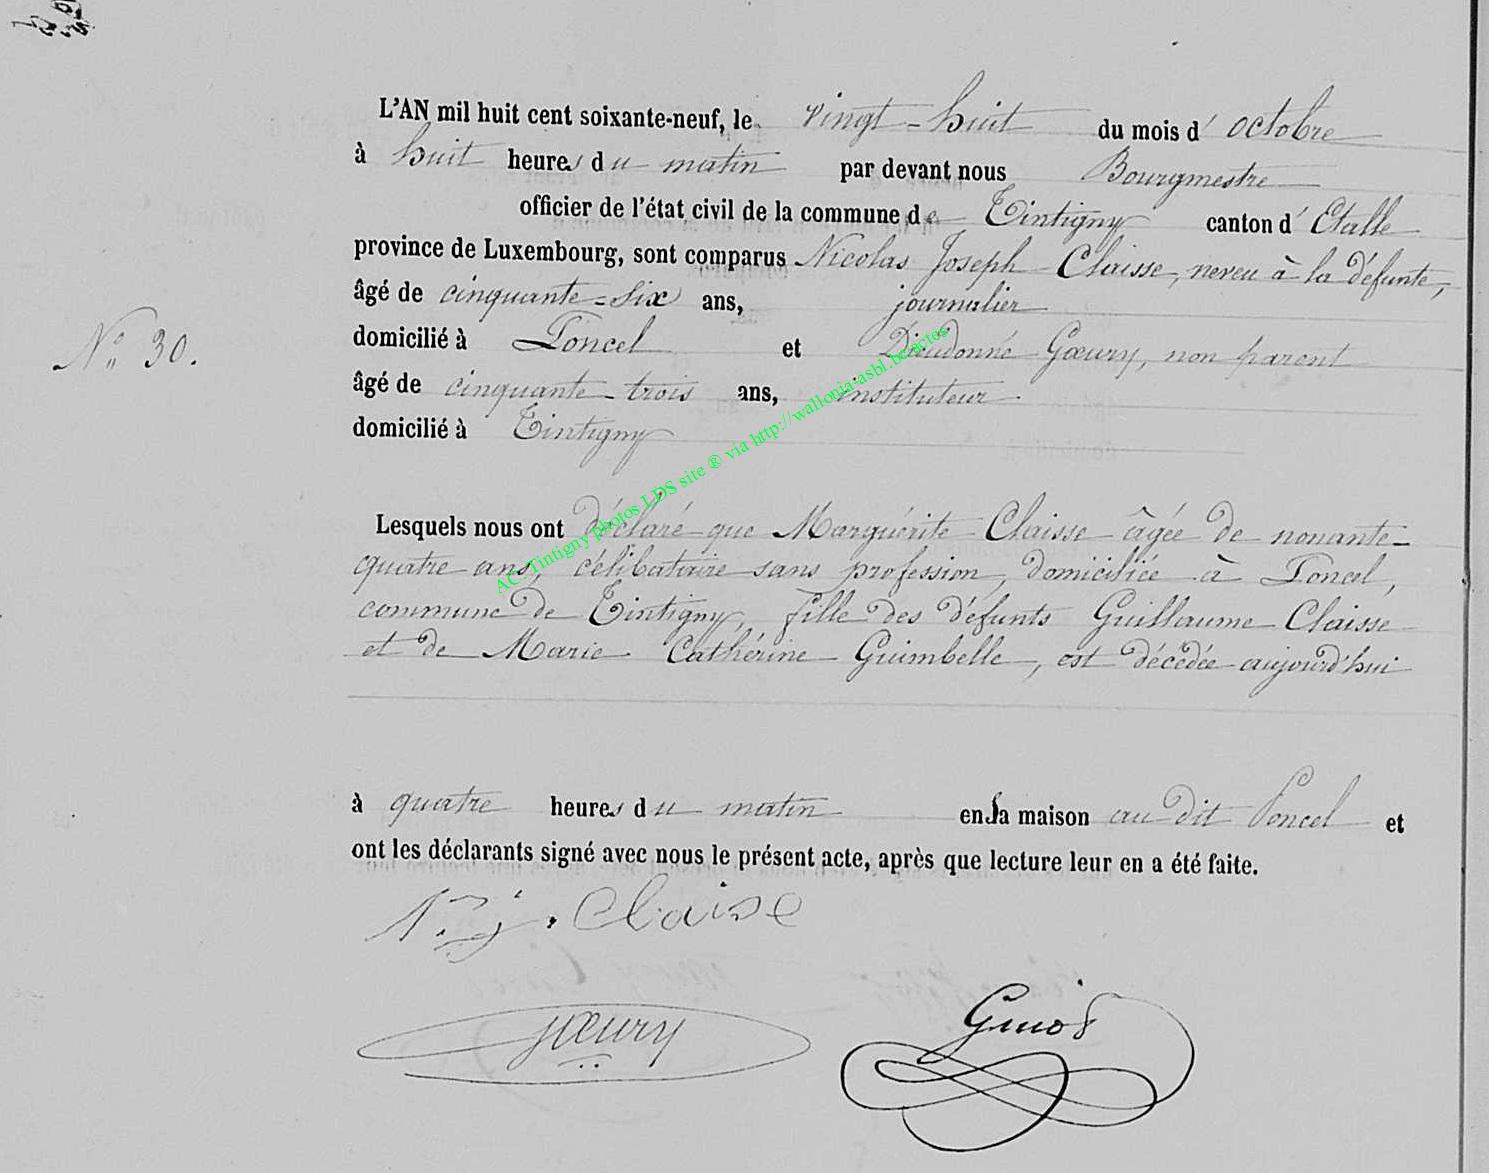 L'AN mil huit cent soixante-neuf, le vingt-huit du mois d'octobre
à huit heures du matin par devant nous Bourgmestre
officier de l'état civil de la commune de Tintigny canton d'Etalle
province de Luxembourg, sont comparus Nicolas Joseph Claisse, neveu à la défunte,
âgé de cinquante-six ans, journalier
N° 30.
domicilié à Poncel et Dieudonné Gœury, non parent
âgé de cinquante-trois ans, instituteur
domicilié à Tintigny
AC-Tintigny photos LDS site ® via http://wallonia-asbl.be/actes
Lesquels nous ont déclaré que Marguérite Claisse âgée de nonante-
quatre ans, célibataire sans profession, domiciliée à Poncel,
commune de Tintigny, fille des défunts Guillaume Claisse
et de Marie Cathérine Guimbelle, est décédée aujourd'hui
à quatre heures du matin en sa maison au dit Poncel et
ont les déclarants signé avec nous le présent acte, après que lecture leur en a été faite.
N. j. Claise
gœury